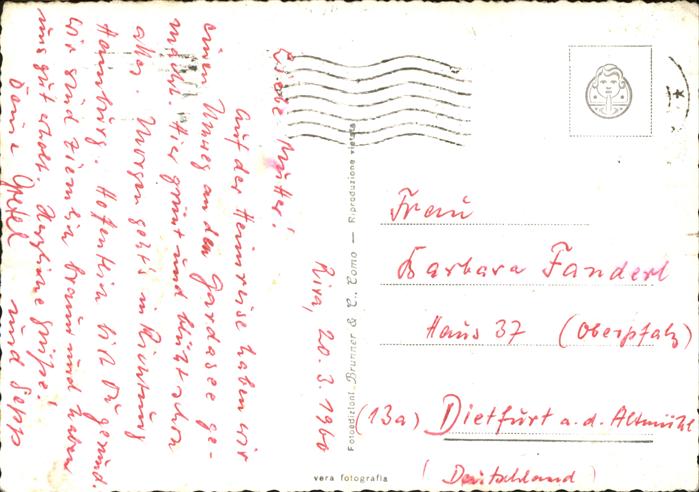 Riva, 20.3.1960
Liebe Mutter!
Auf der Heimreise haben wir
einen Umweg an den Gardasee ge-
macht. Hier grünt und blüht schon
alles. Morgen geht's in Richtung
Hainsburg. Hoffentlich bist Du gesund.
Wir sind ziemlich braun und haben
uns gut erholt. Herzliche Grüße!
Deine Gretel und Sepp
Fotoedizioni Brunner & C., Como — Riproduzione vietata
Frau
Barbara Fanderl
Haus 37 (Oberpfalz)
(13a) Dietfurt a.d. Altmühl
(Deutschland)
vera fotografia